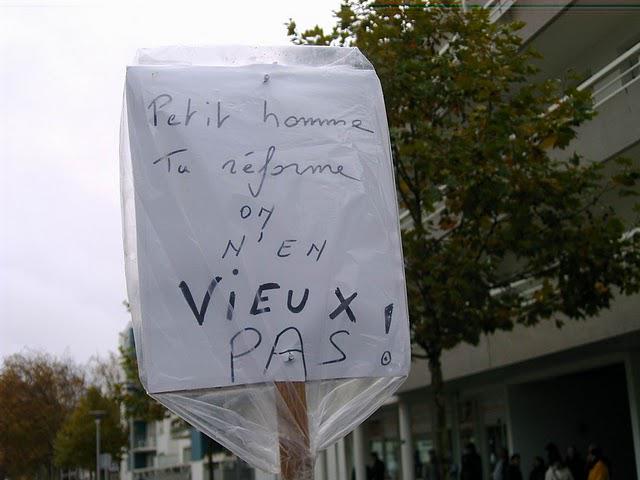 Petit homme
Ta réforme
on
N'EN
VIEUX
PAS !